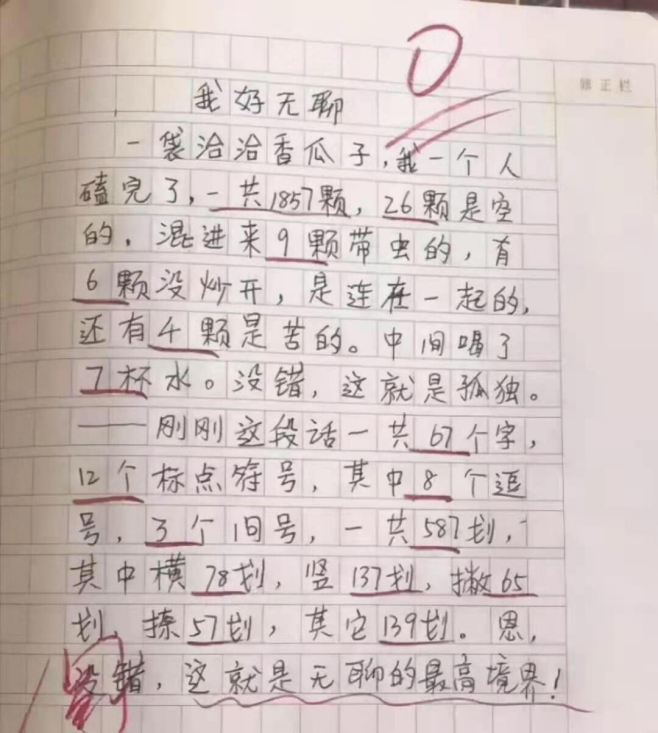 0
修正栏
我好无聊
一袋洽洽香瓜子,我一个人
磕完了,一共1857颗,26颗是空
的,混进来9颗带虫的,有
6颗没炒开,是连在一起的,
还有4颗是苦的。中间喝了
7杯水。没错,这就是孤独。
——刚刚这段话一共67个字,
12个标点符号,其中8个逗
号,3个旧号,一共587划,
其中横78划,竖137划,撇65
划,捺57划,其它139划。恩,
没错,这就是无聊的最高境界!